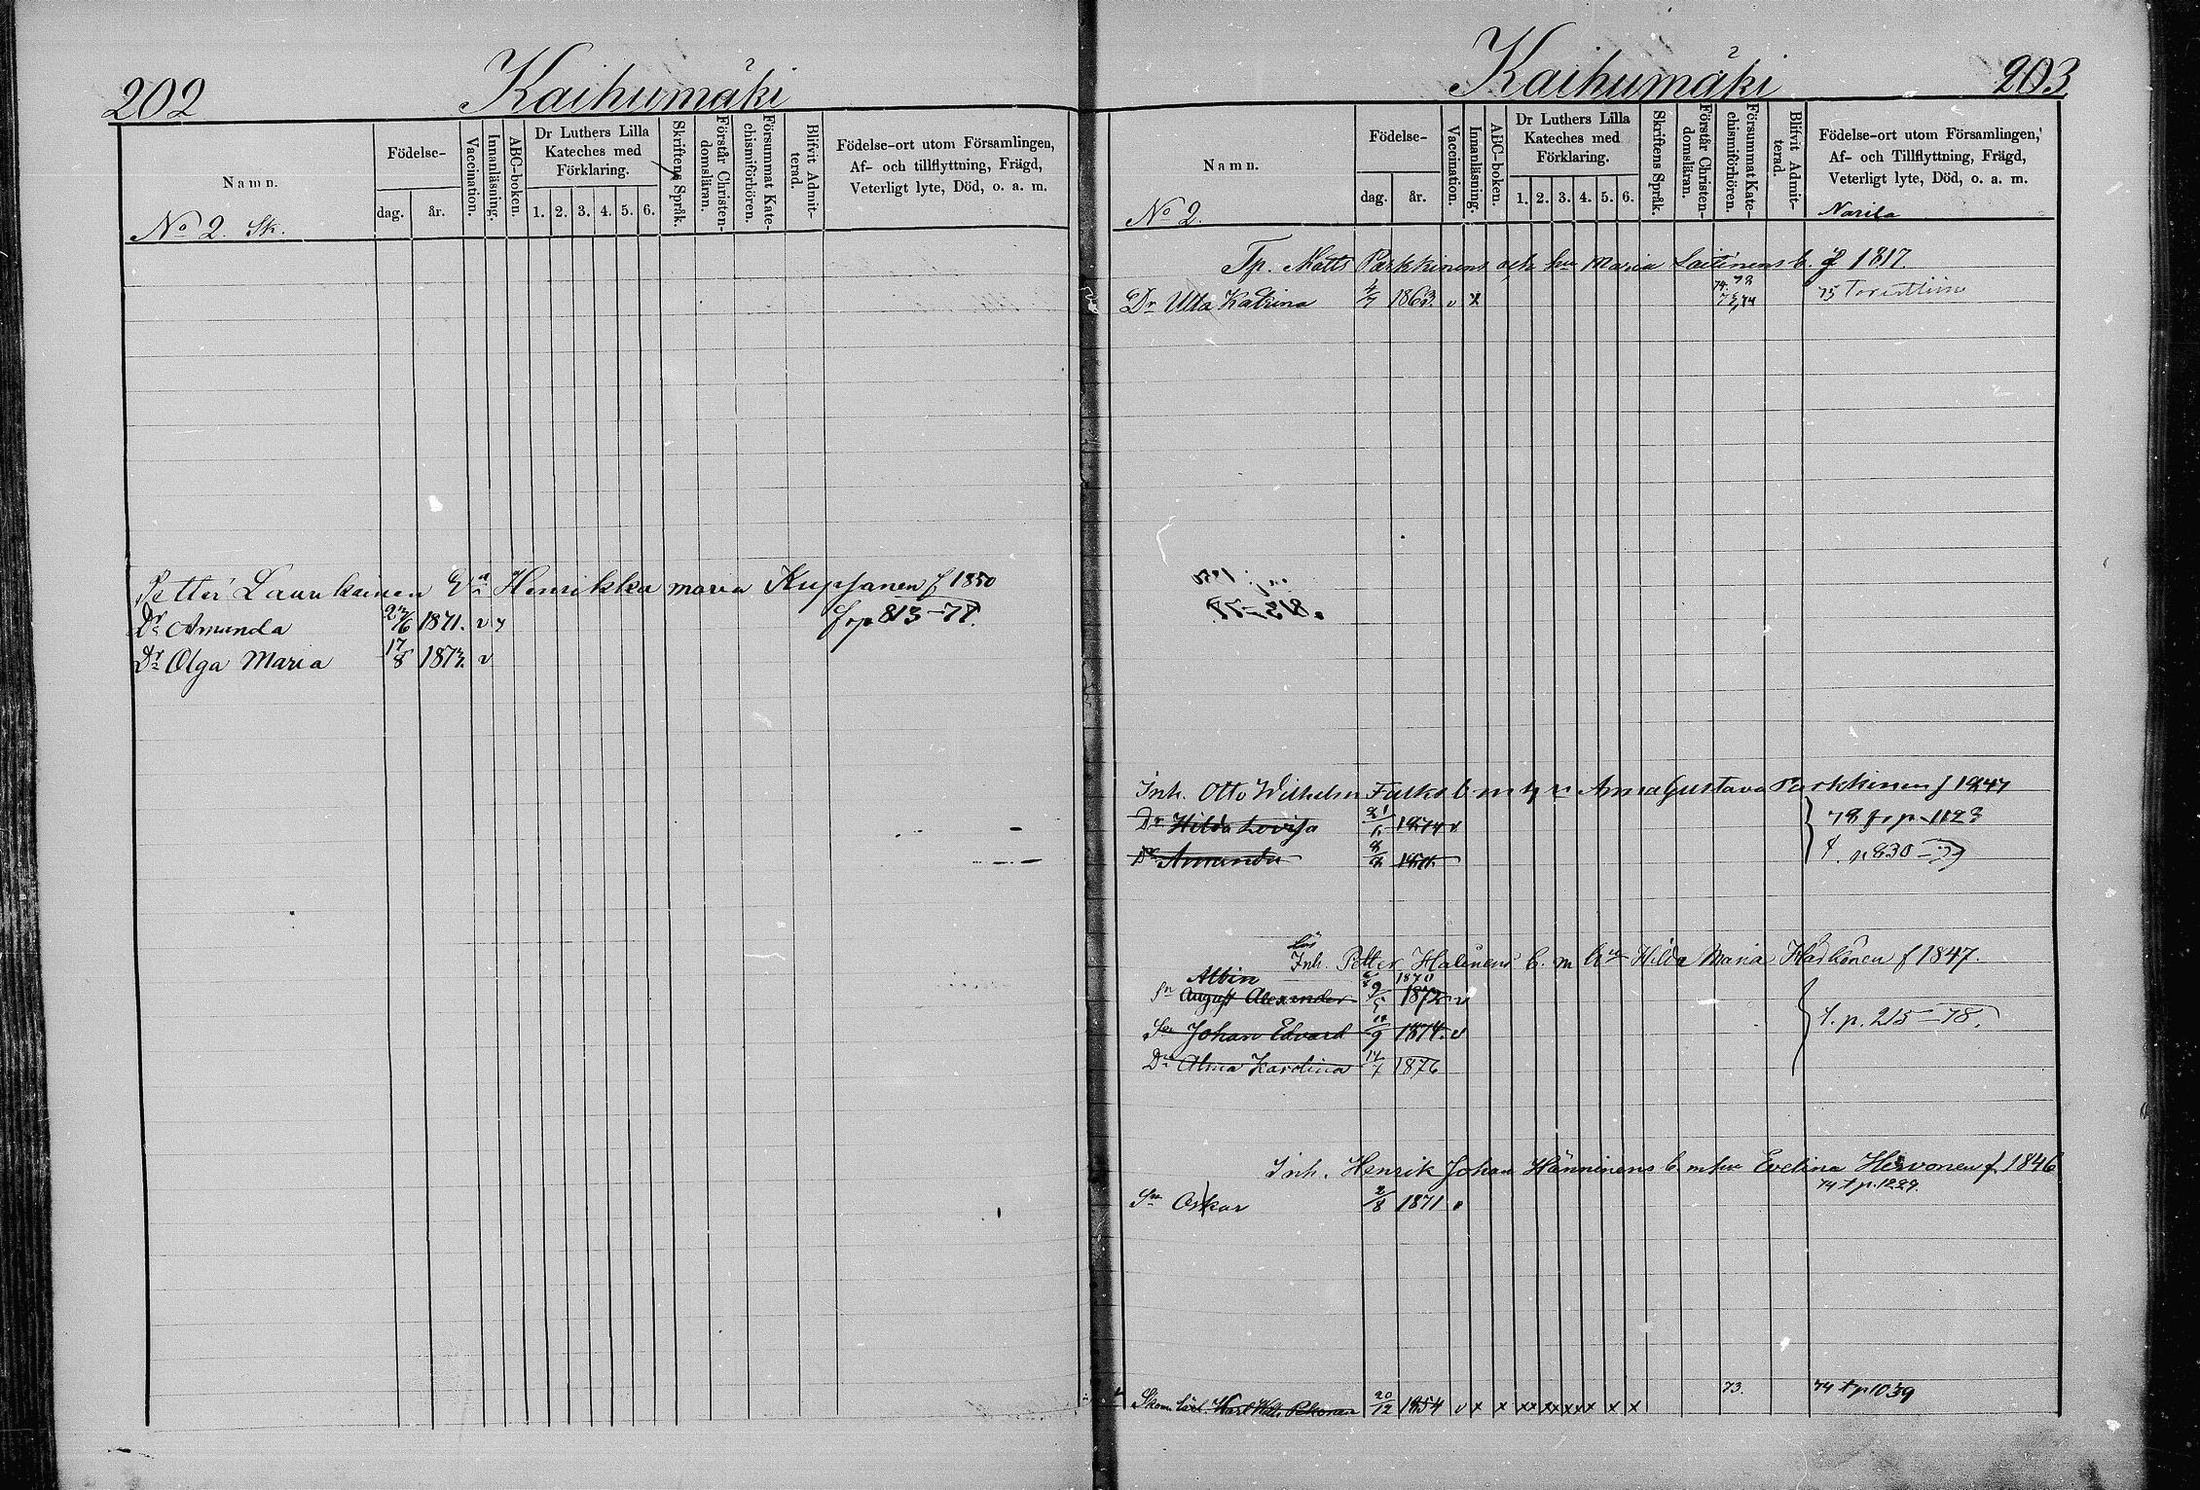 202
Kaihumäki
Namn.
Födelse-
dag.
år.
Vaccination.
Innanläsning.
ABC-boken.
Dr Luthers Lilla
Kateches med
Förklaring.
1. 2. 3. 4. 5. 6.
Skriftens Språk.
Förstår Christen-
domsläran.
Försummat Kate-
chismiförhören.
Blifvit Admit-
terad.
Födelse-ort utom Församlingen,
Af- och tillflyttning, Frägd,
Veterligt lyte, Död, o. a. m.
No 2. Sk.
Petter Laurikainen Henrikka Maria f 1850
Dr Amanda 1871. v
fr p 813–77.
Dr Olga Maria 17/8 1873. v
Kaihumäki
203
Namn.
Födelse-
dag.
år.
Vaccination.
Innanläsning.
ABC-boken.
Dr Luthers Lilla
Kateches med
Förklaring.
1. 2. 3. 4. 5. 6.
Skriftens Språk.
Förstår Christen-
domsläran.
Försummat Kate-
chismiförhören.
Blifvit Admit-
terad.
Födelse-ort utom Församlingen,
Af- och Tillflyttning, Frägd,
Veterligt lyte, Död, o. a. m.
No 2.
Narila
Tp. Matts Parkkinens och hu Maria Laitinens b. f 1817.
Dr Ulla Katrina 1863. v x
Inh. Otto Wilhelm b m Anna Gustava Parkkinen f 1847
Dr Hilda Lovisa 1874 v
78 fr p. 1123
Dr Amanda
f. p 830–79
Inh. Petter Halinens b. m Hilda Maria f 1847.
Albin 1870
Sn August Alexander 9/5 1872 v
Sn Johan Edvard 1874. v
f. p. 215–78.
Dr Alma Karolina 1876
Inh. Henrik Johan Hänninens b. m hu Evelina Hirvonen f. 1846
74 f p. 1229.
Sn Oskar 2/8 1871
73.
74 f p 1039
Karl 20/12 1854 v x x xx xx xxx x x